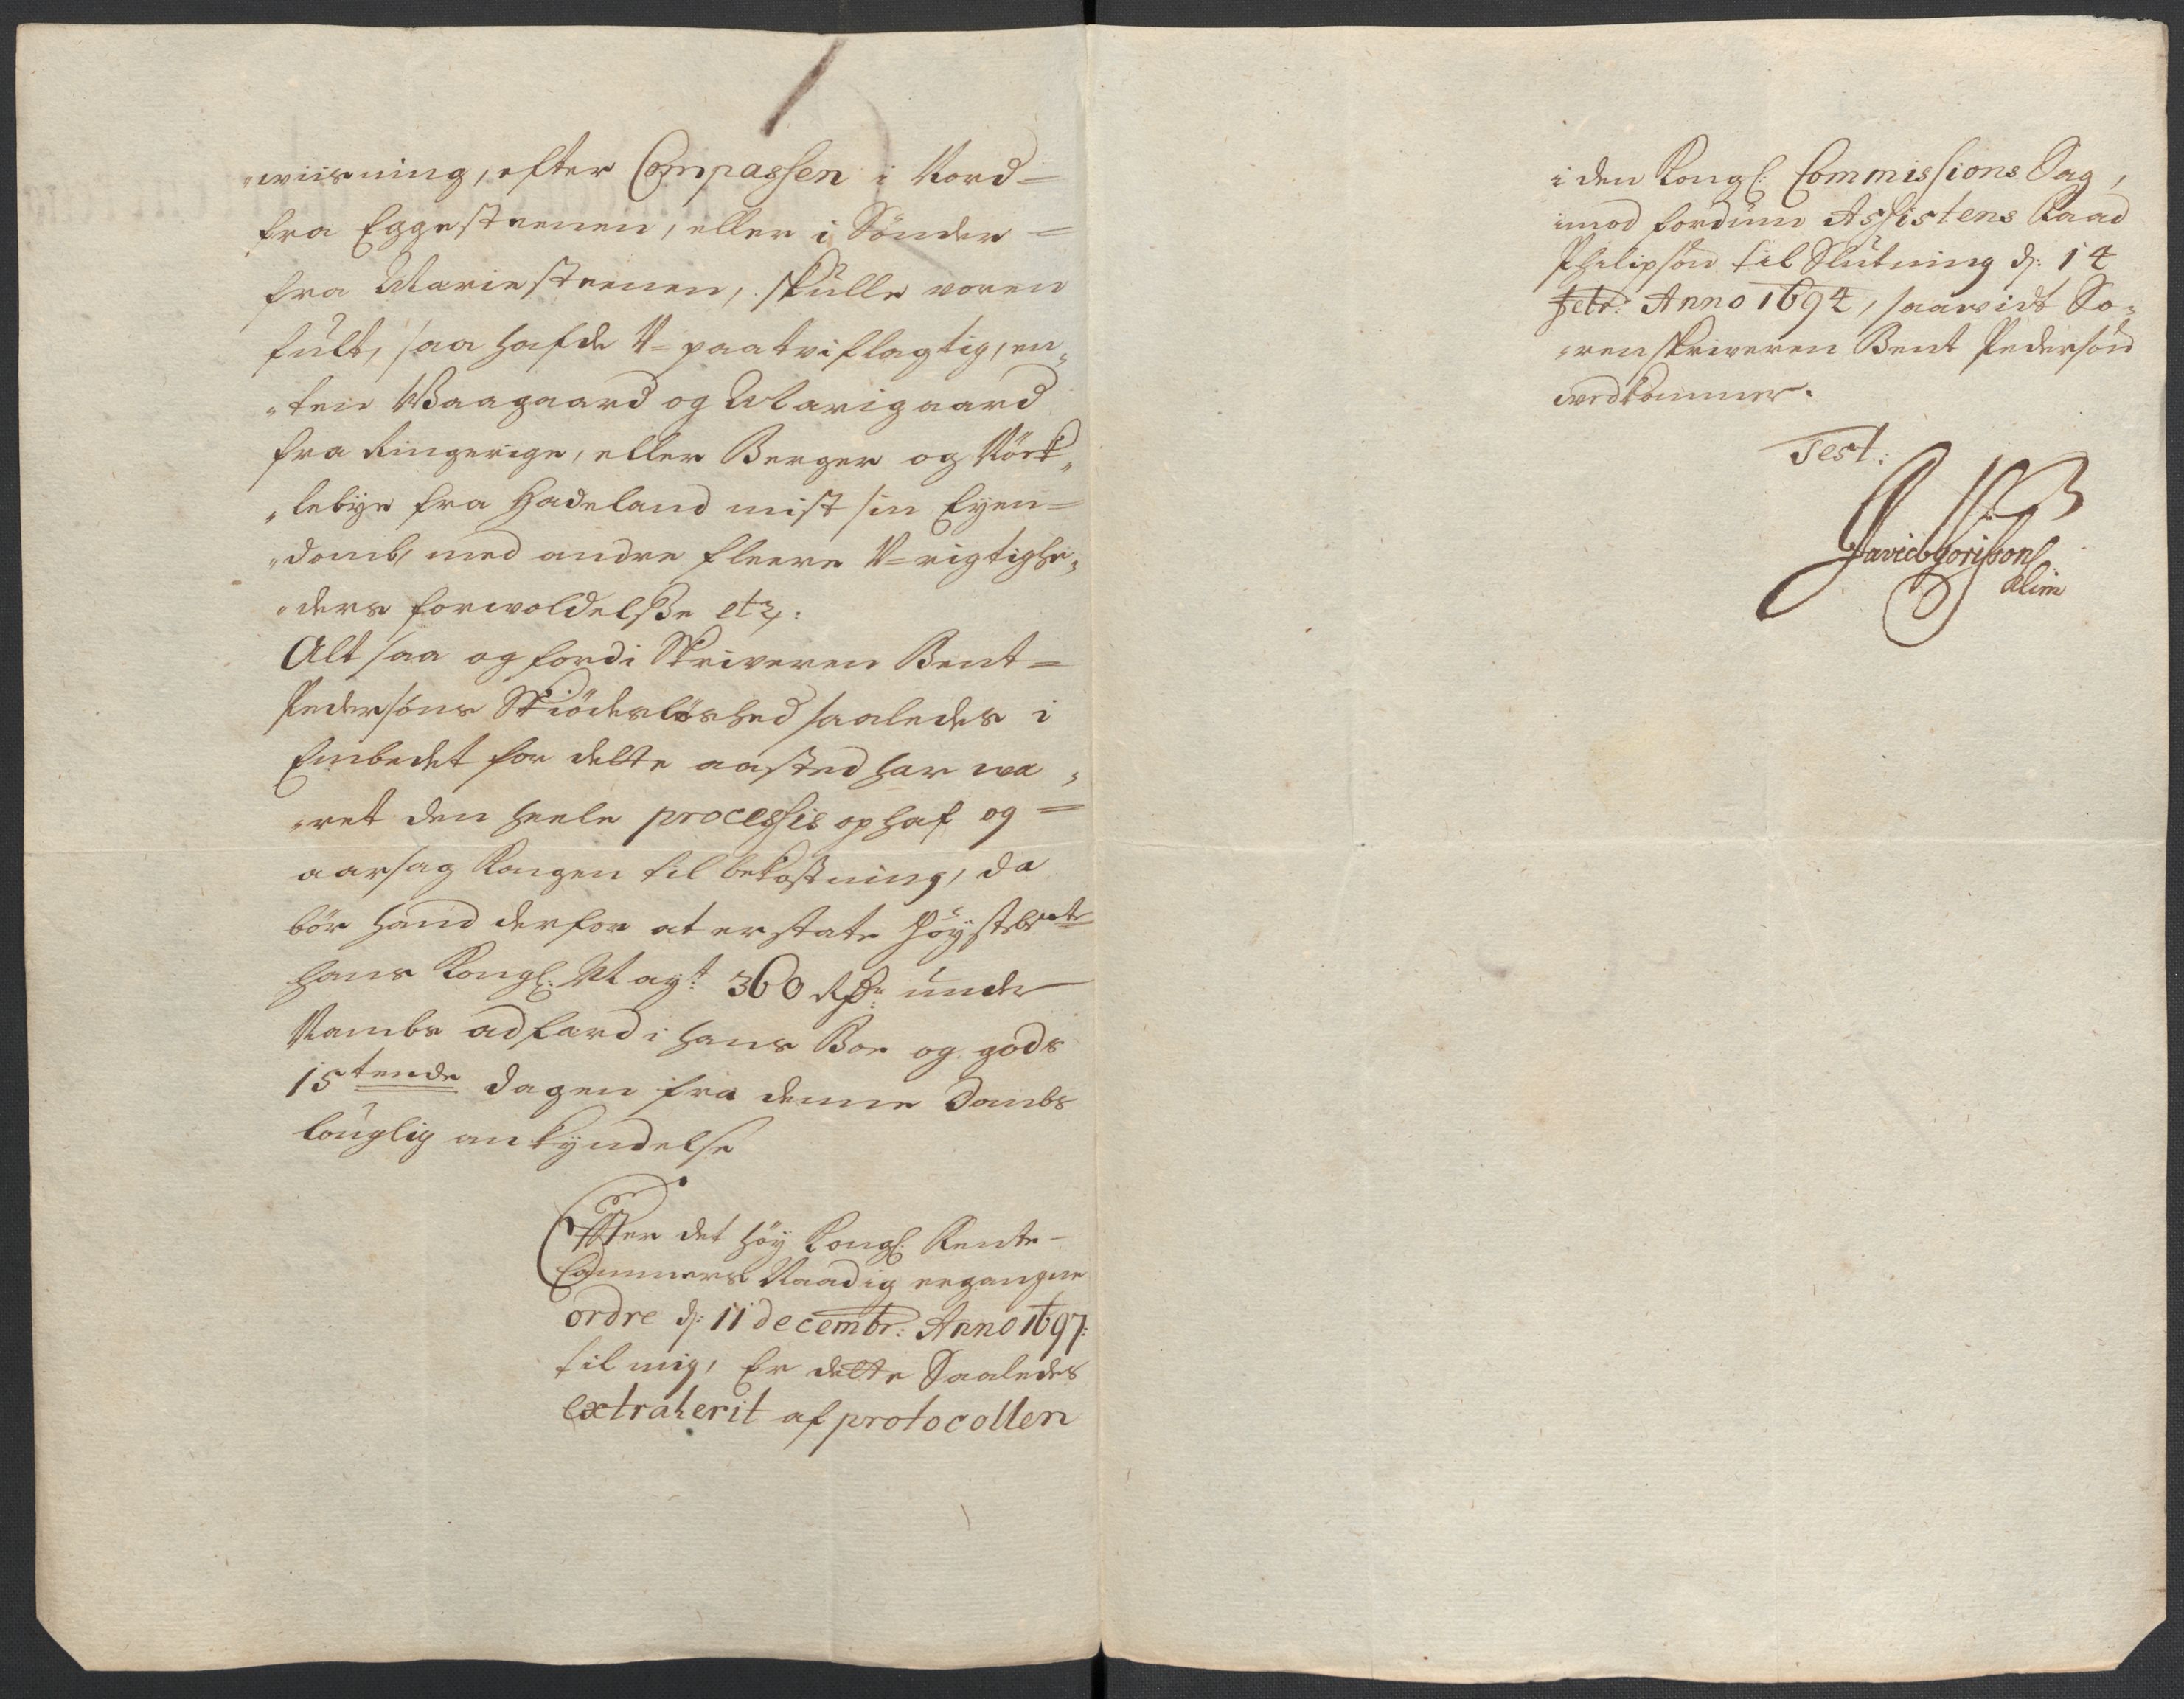 "wiisning, efter Compassen i Nord=
fra Eggesteenen, eller i Sönder=
fra Mariesteenen, skulle voren
fult, saa hafde U=paatviflagtig, en„
"ten Waagaard og Marigaard
fra Ringerige, eller Berger og Röck„
"lebÿe fra Hadeland mist sin Eÿen=
"domb, med andre fleere U=rigtighe„
"ders forwoldelsse etz:
Alt saa og fordi Skriveren Bent=
Pedersöns Skiödeslöshed saaledes i
Embedet for dette aasted har wa„
"ret den heele processis ophaf og=
aarsag Kongen til bekostning, da
bör hand derfor at erstate Höÿstbte
hans Kongl: Maÿt 360 Rdr under
Nambs adfærd i hans Boe og gods
15tende dagen fra denne Dombs
louglig ankÿndelse
Effter det Höÿ Kongl: Rente-
Cammers Naadig ergangne
ordre d: 11 decembr: Anno 1697:
til mig, Er dette Saaledes
extraherit af protocollen
i den Kongl: Commissions Sag,
imod fordum Assistens Raad
Philipsön til Slutning d: 14
febr: Anno 1694, saavidt So„
"renskriveren Bent Pedersön
vedkommer.
Test: